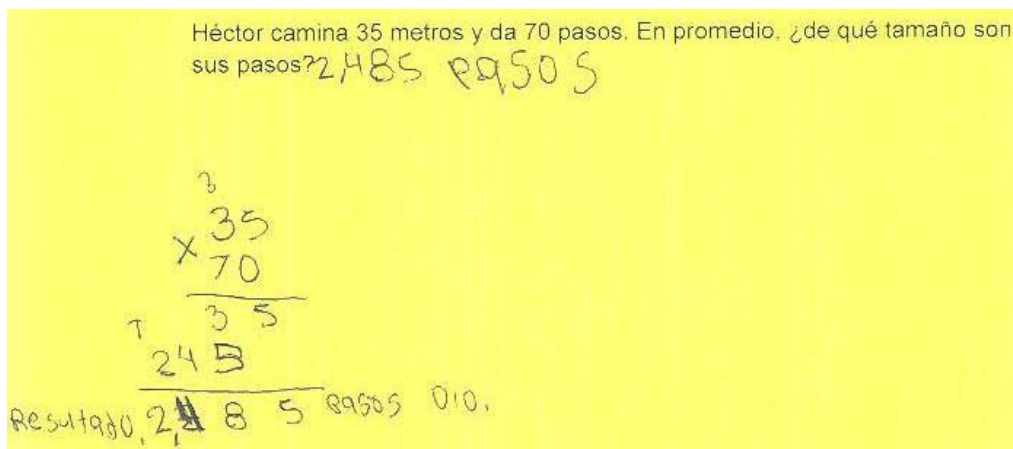 Héctor camina 35 metros y da 70 pasos. En promedio, ¿de qué tamaño son
sus pasos? 2,485 pasos
3
35
x 70
35
1
245
Resultado, 2,485 pasos Dio.